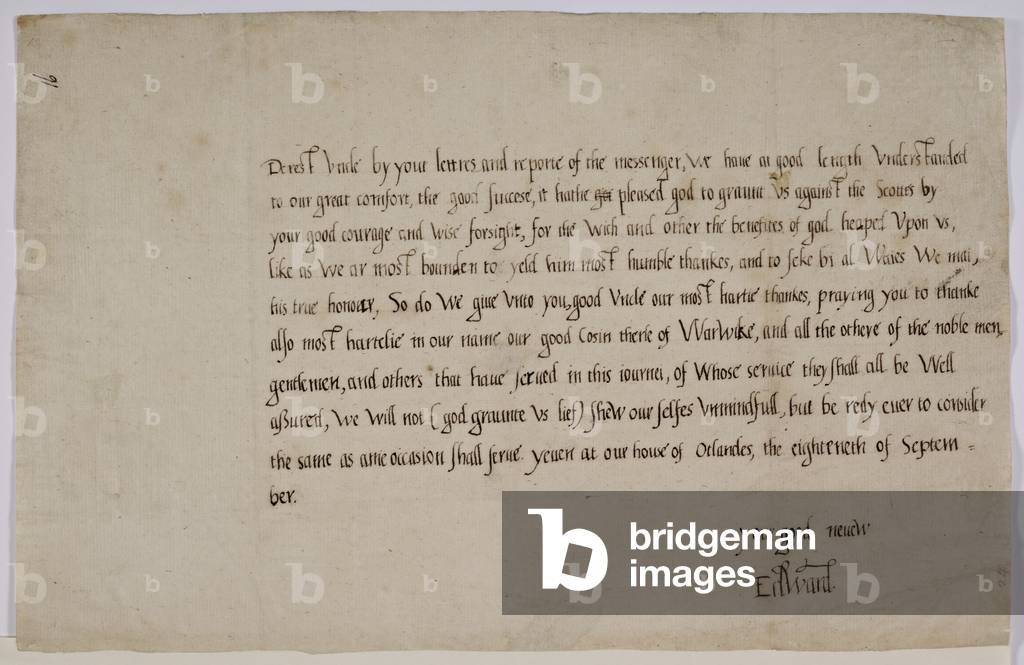 Derest Vncle by your lettres and reporte of the messenger, we haue at good length Vnderstanded
to our great comfort, the good succese, it hathe pleased god to graunt Vs against the Scotts by
your good courage and wise forsight, for the wich and other the benefites of god heaped Vpon vs,
like as we ar most bounden to yeld him most humble thankes, and to seke bi al waies we mai,
his true honour, So do we giue vnto you, good Vncle our most hartie thankes, praying you to thanke
also most hartelie in our name our good Cosin therle of Warwike, and all the othere of the noble men,
gentlemen, and others that haue serued in this iournei, of whose seruice they shall all be well
assured, we will not (god graunte Vs lief) shew our selfes Vnmindfull, but be redy euer to consider
the same as anie occasion shall serue. yeuen at our house of Otlandes, the eighteneth of Septem =
ber.
your good neuew
Edward.
bridgeman
images